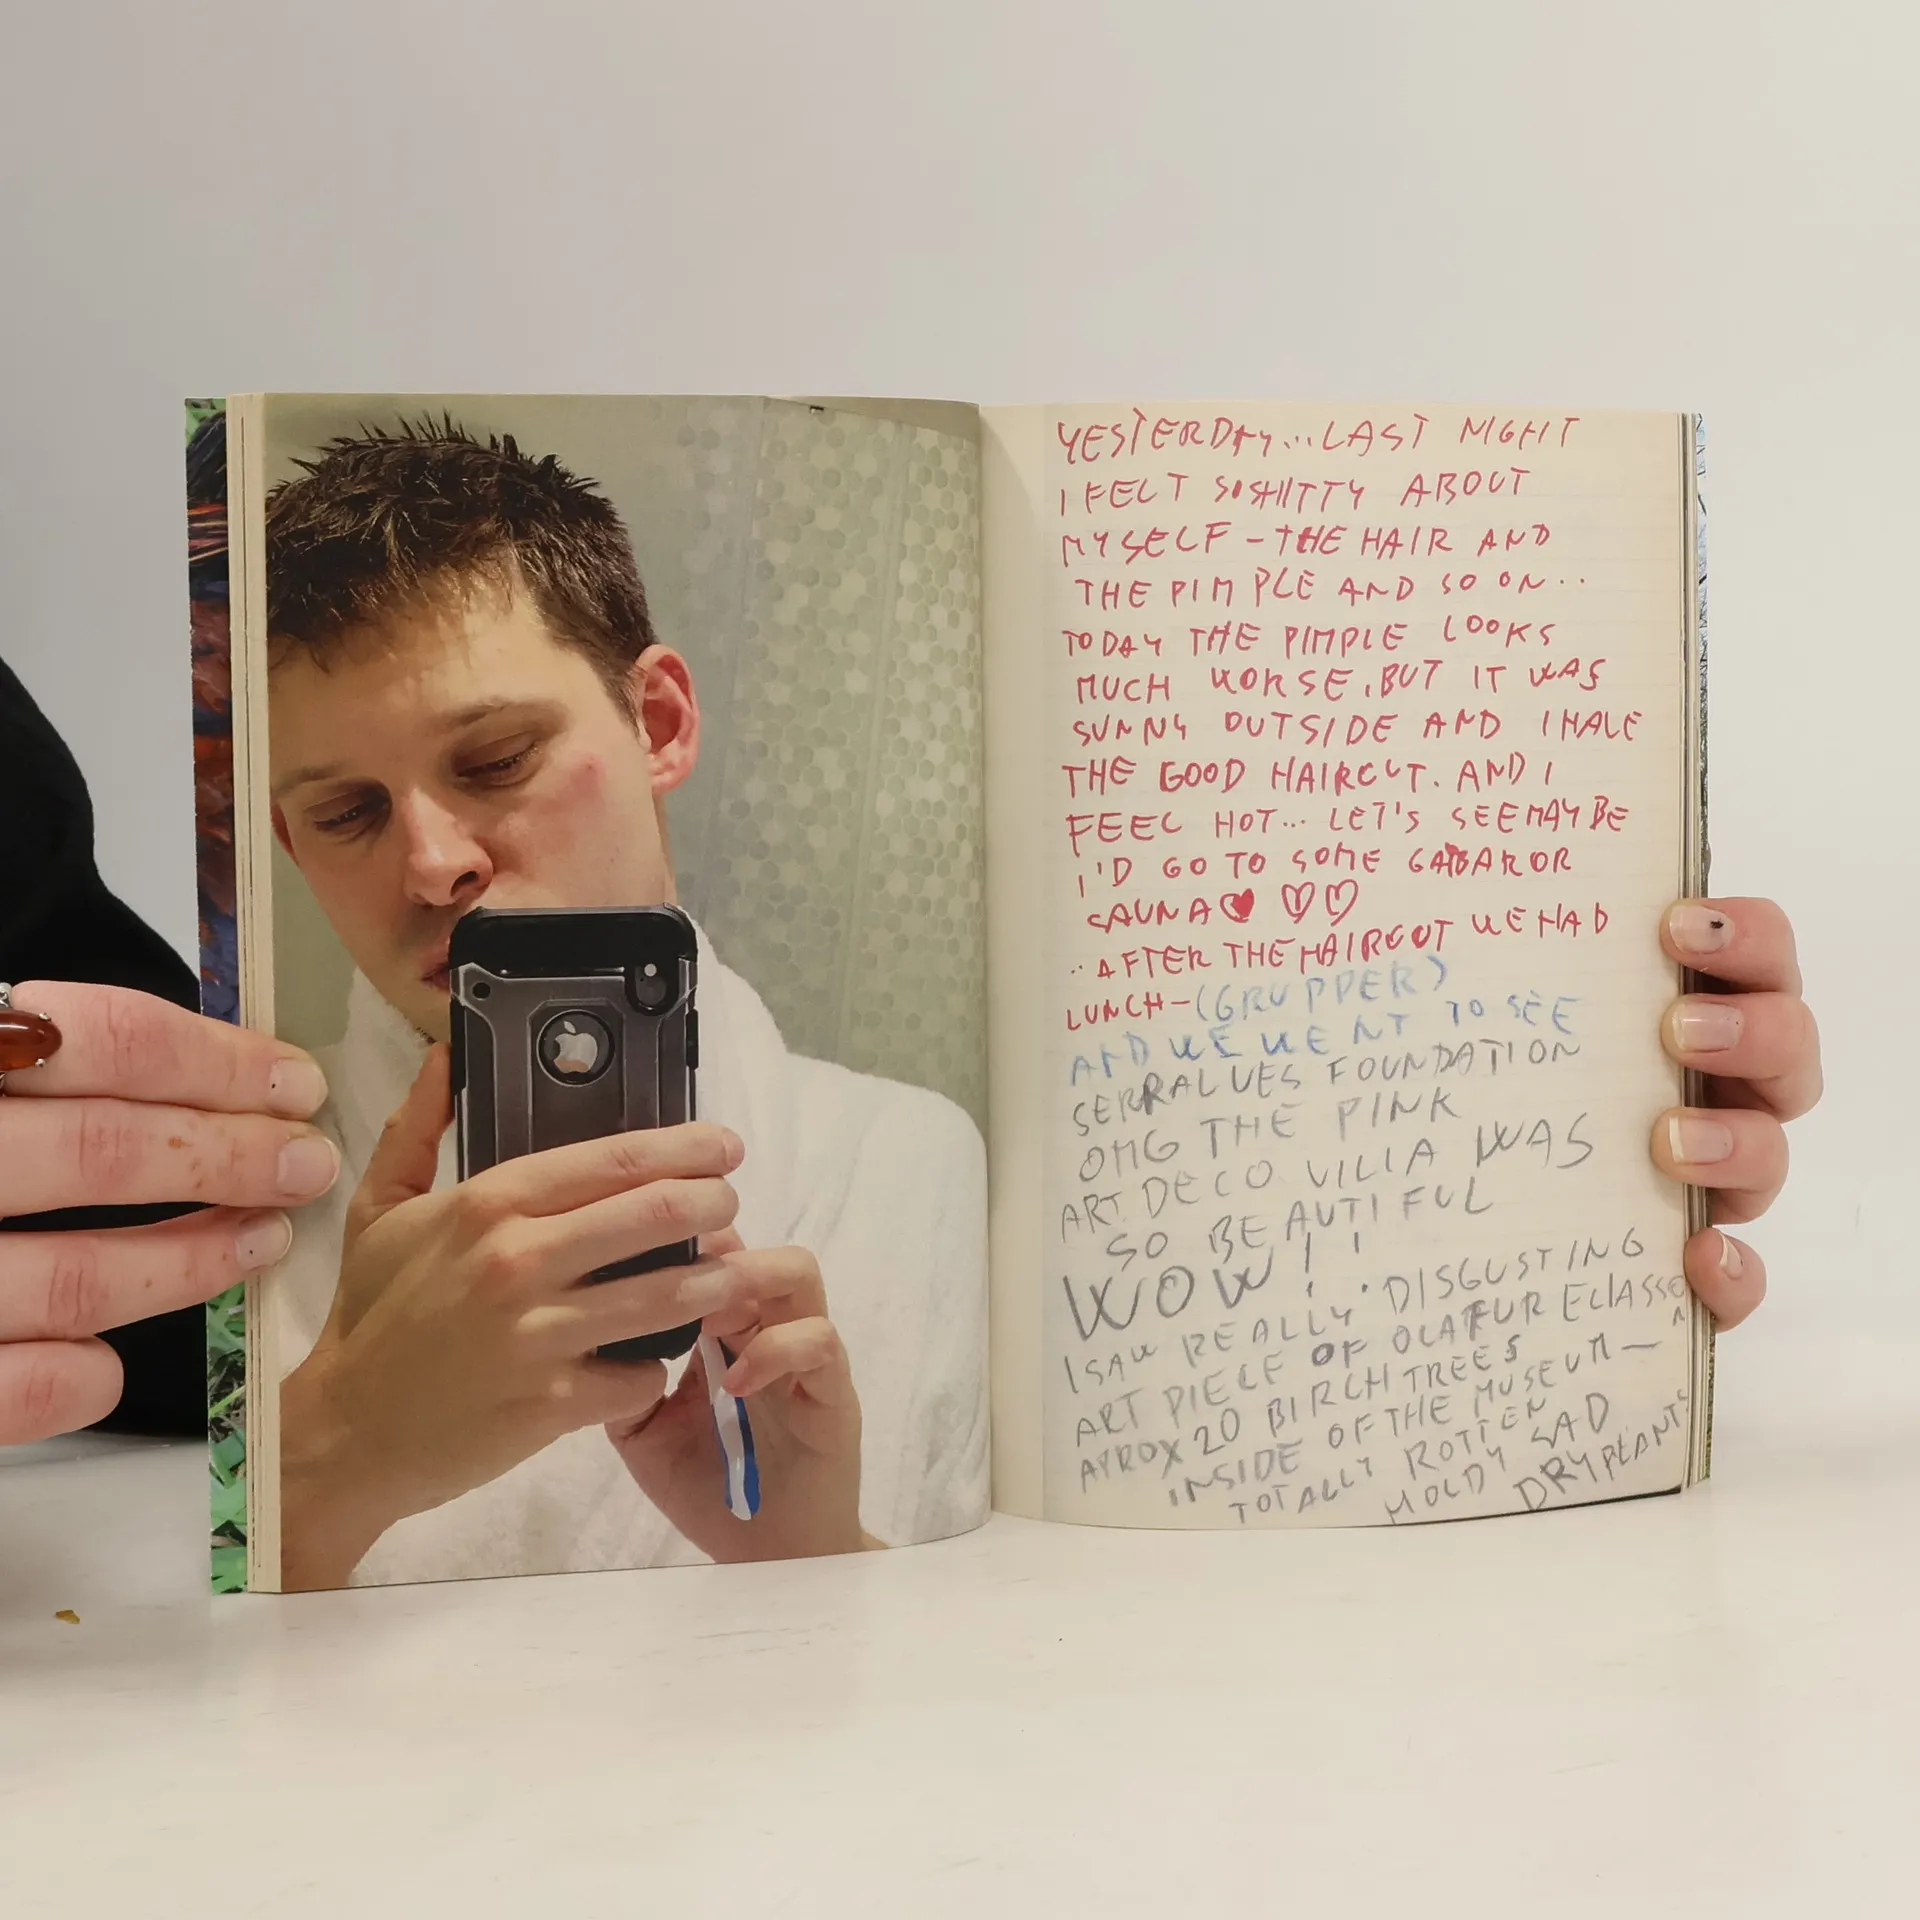 YESTERDAY...LAST NIGHT
I FELT SO SHITTY ABOUT
MYSELF – THE HAIR AND
THE PIMPLE AND SO ON..
TODAY THE PIMPLE LOOKS
MUCH WORSE, BUT IT WAS
SUNNY OUTSIDE AND I HAVE
THE GOOD HAIRCUT. AND I
FEEL HOT... LET'S SEE MAYBE
I'D GO TO SOME GAY BAR OR
SAUNA ♥ ♡♡
..AFTER THE HAIRCUT WE HAD
LUNCH – (GRUPPER)
AND WE WENT TO SEE
SERRALVES FOUNDATION
OMG THE PINK
ART DECO VILLA WAS
SO BEAUTIFUL
WOW!!
I SAW REALLY DISGUSTING
ART PIECE OF OLAFUR ELIASSON
APROX 20 BIRCH TREES
INSIDE OF THE MUSEUM –
TOTALLY ROTTEN
MOLDY SAD
DRY PLANTS